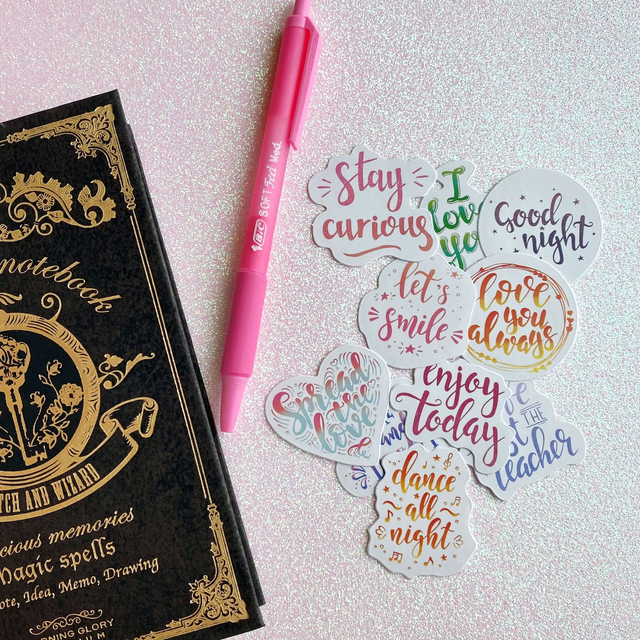 notebook
TCH AND WIZARD
cious memories
Magic spells
ote, Idea, Memo, Drawing
RNING GLORY
BIC SOFT Feel Med.
stay
curious
I
love
yo
Good
night
let's
smile
love
you
always
Spread
the
love
enjoy
today
and
THE
teacher
dance
all
night